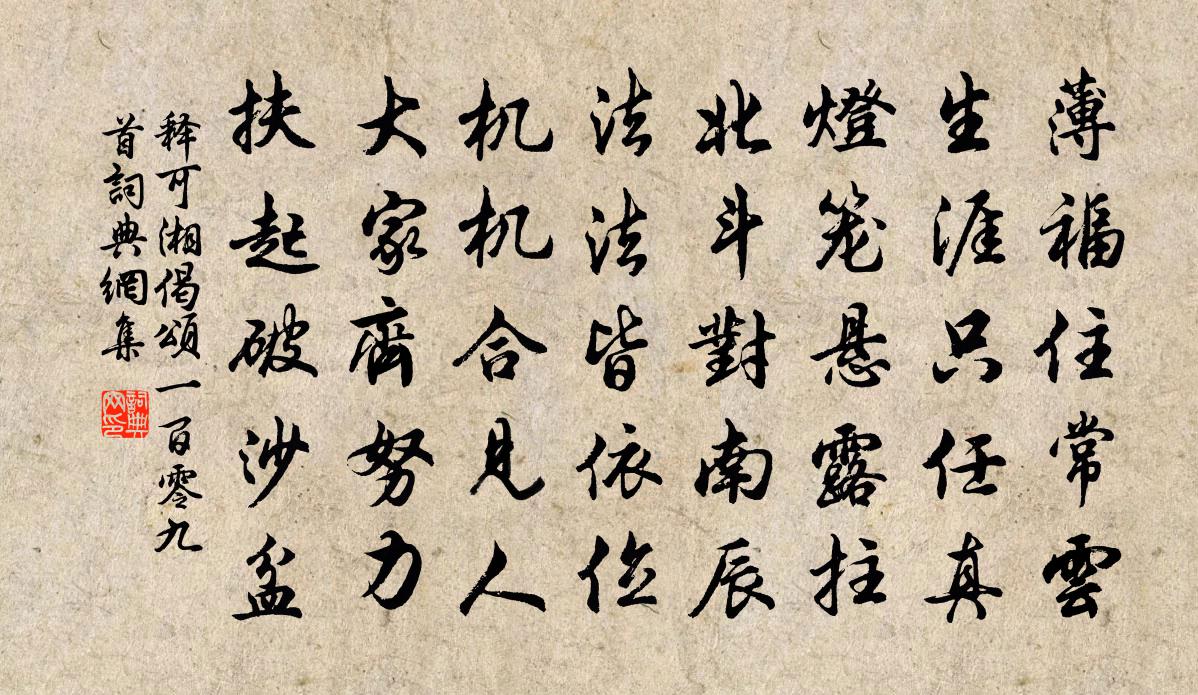 薄福住常雲
生涯只任真
燈笼悬露拄
北斗對南辰
法法皆依位
机机合見人
大家齊努力
扶起破沙盆
释可湘偈頌一百零九
首詞典網集
詞典
网印